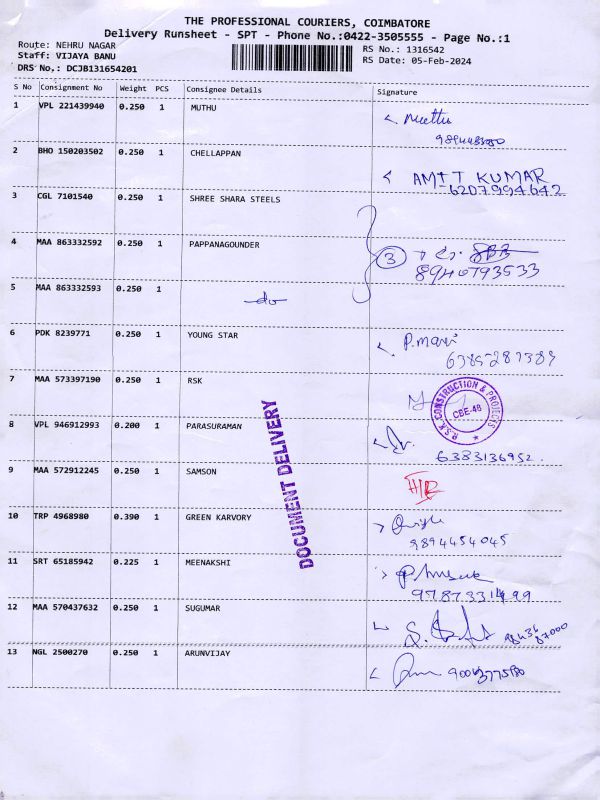 THE PROFESSIONAL COURIERS, COIMBATORE
Delivery Runsheet - SPT - Phone No.:0422-3505555 - Page No.:1
Route: NEHRU NAGAR
RS No.: 1316542
Staff: VIJAYA BANU
RS Date: 05-Feb-2024
DRS No.: DCJB131654201
S No Consignment No Weight PCS Consignee Details Signature
1 VPL 221439940 0.250 1 MUTHU Muthu
2 BHO 150203502 0.250 1 CHELLAPPAN AMIT KUMAR
6207994642
3 CGL 7101540 0.250 1 SHREE SHARA STEELS
4 MAA 863332592 0.250 1 PAPPANAGOUNDER 3
8940793533
5 MAA 863332593 0.250 1 do
6 PDK 8239771 0.250 1 YOUNG STAR P.mari
6385287389
7 MAA 573397190 0.250 1 RSK
R.S.K. CONSTRUCTION & PROJECTS
CBE-48
8 VPL 946912993 0.200 1 PARASURAMAN
6383136952.
9 MAA 572912245 0.250 1 SAMSON
DOCUMENT DELIVERY
10 TRP 4968980 0.390 1 GREEN KARVORY
9894454045
11 SRT 65185942 0.225 1 MEENAKSHI
12 MAA 570437632 0.250 1 SUGUMAR
98436
87000
13 NGL 2500270 0.250 1 ARUNVIJAY